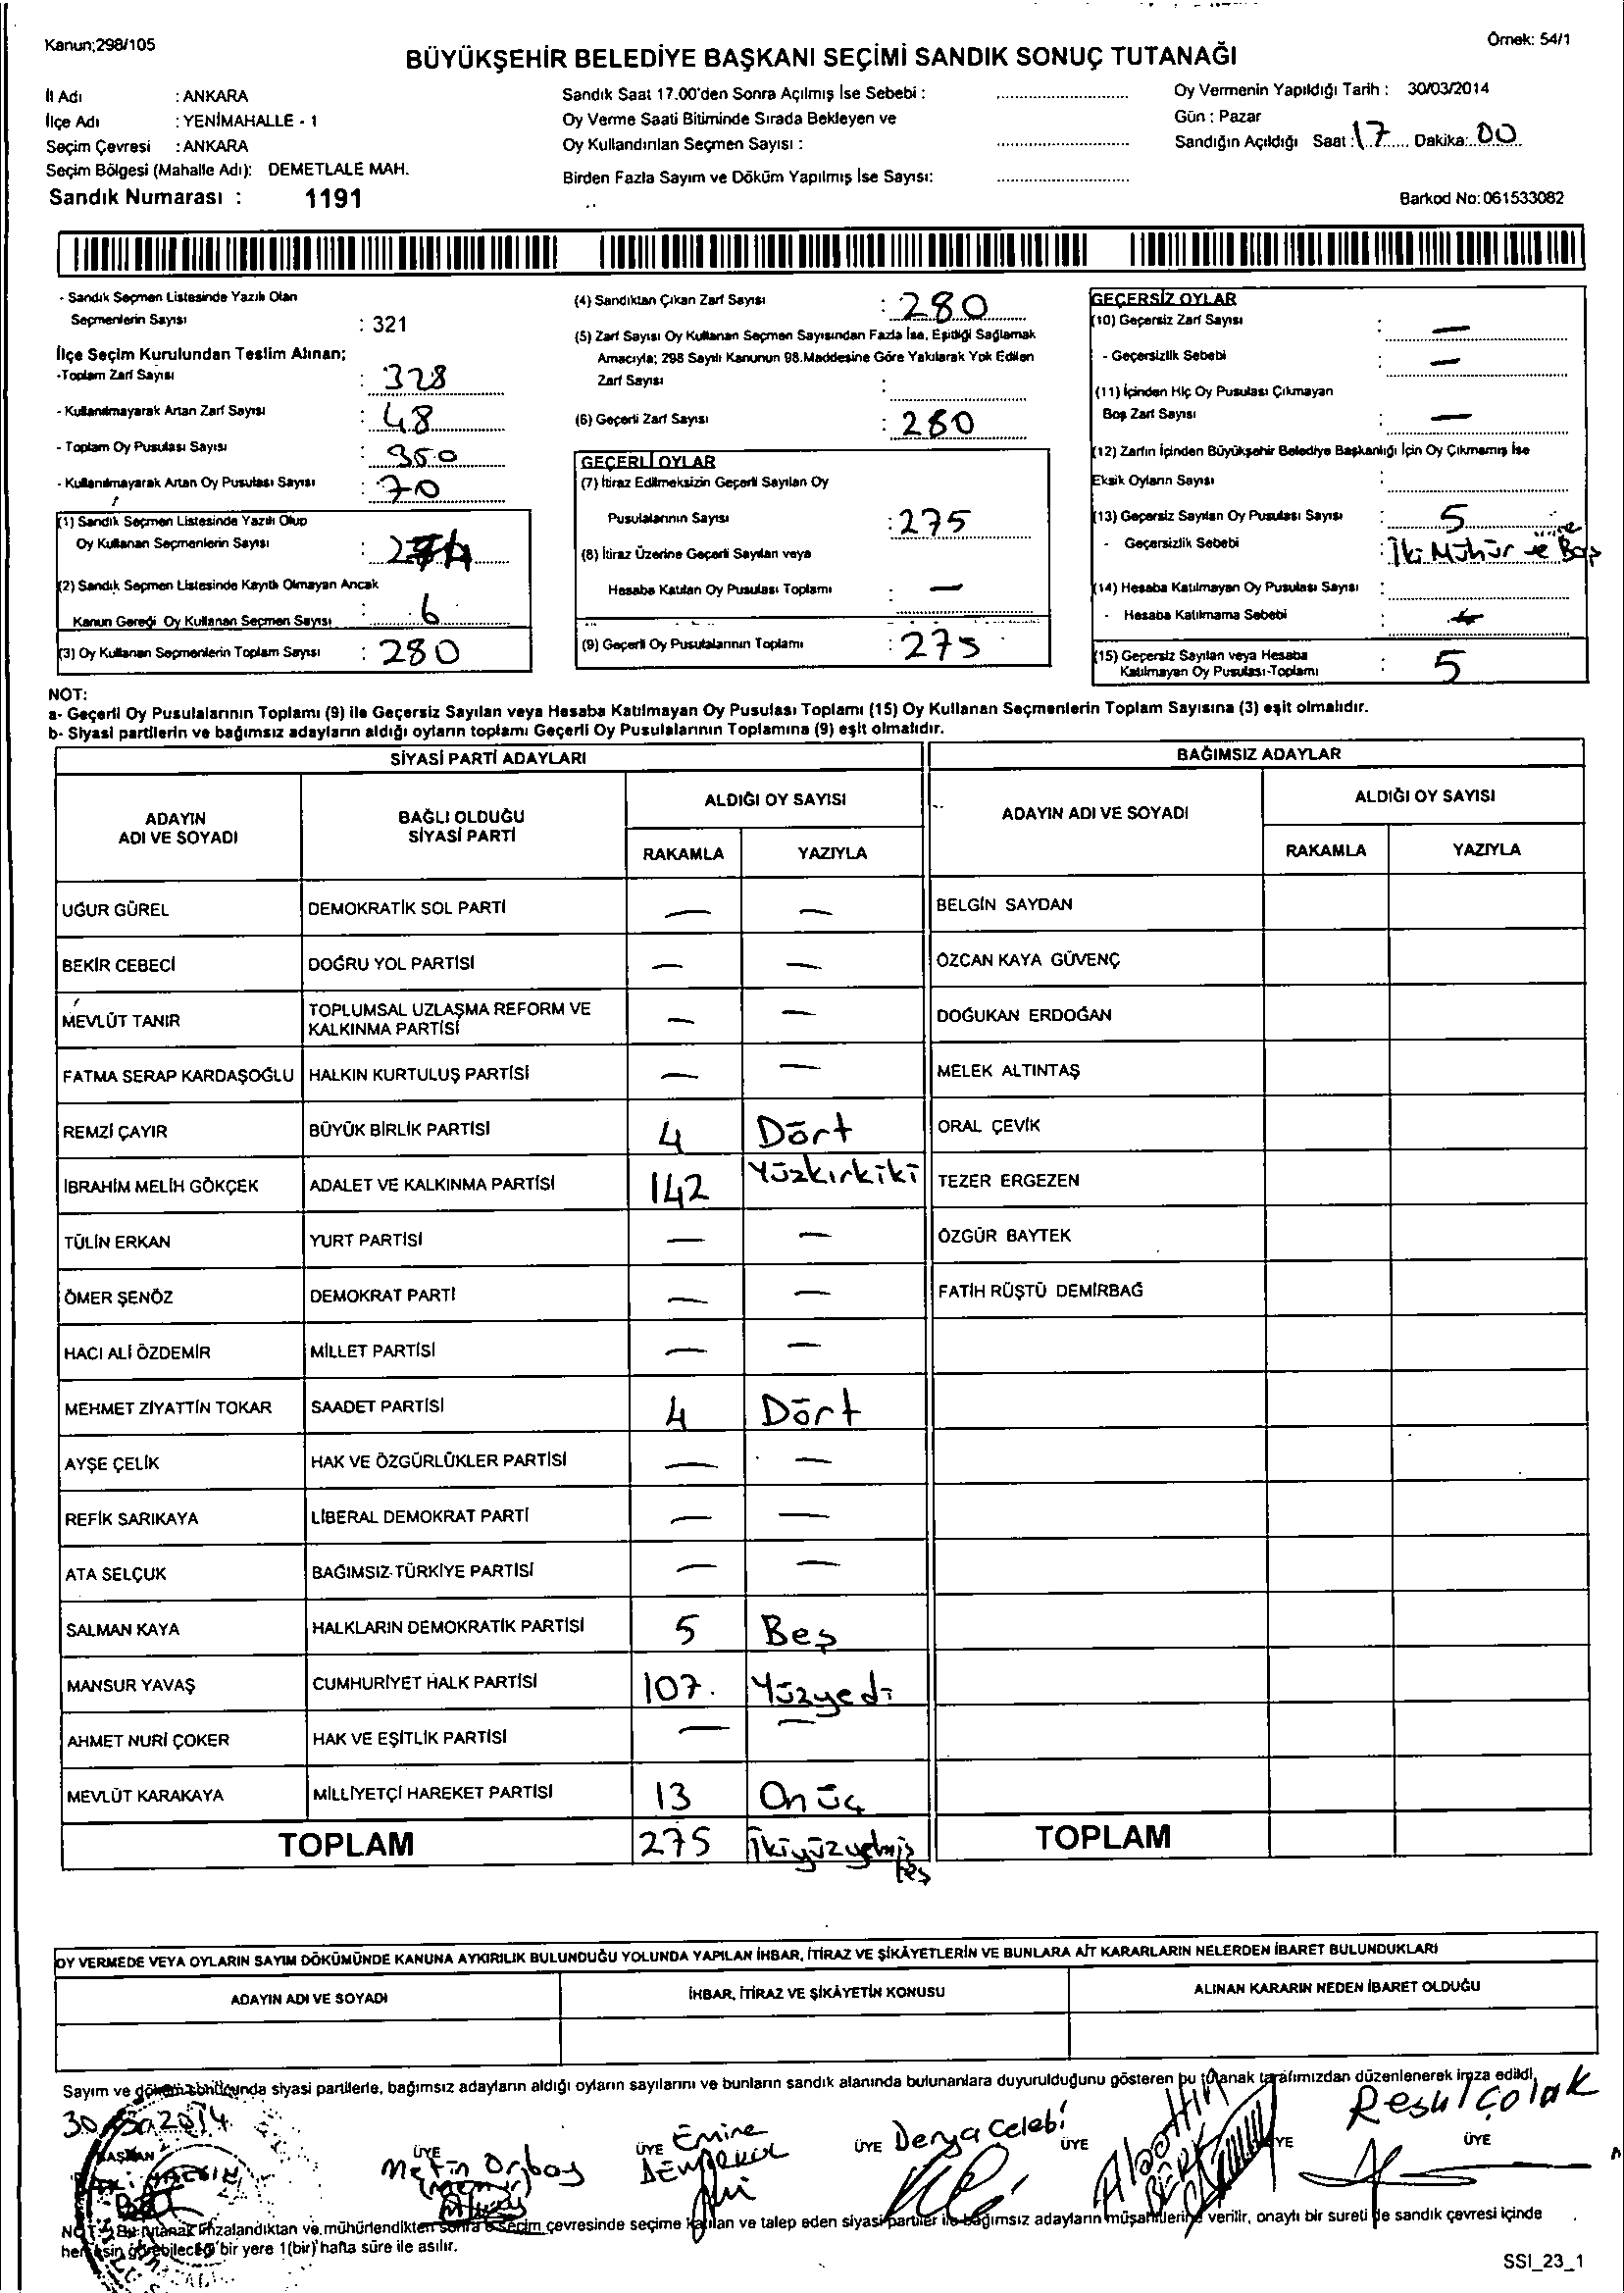 Kanun;298/105
Örnek: 54/1
BÜYÜKŞEHİR BELEDİYE BAŞKANI SEÇİMİ SANDIK SONUÇ TUTANAĞI
İl Adı : ANKARA
İlçe Adı : YENİMAHALLE - 1
Seçim Çevresi : ANKARA
Seçim Bölgesi (Mahalle Adı): DEMETLALE MAH.
Sandık Numarası : 1191
Sandık Saat 17.00'den Sonra Açılmış İse Sebebi :
Oy Verme Saati Bitiminde Sırada Bekleyen ve
Oy Kullandırılan Seçmen Sayısı :
Birden Fazla Sayım ve Döküm Yapılmış İse Sayısı:
Oy Vermenin Yapıldığı Tarih : 30/03/2014
Gün : Pazar
Sandığın Açıldığı Saat : 17 Dakika: 00
Barkod No: 061533082
- Sandık Seçmen Listesinde Yazılı Olan
Seçmenlerin Sayısı : 321
İlçe Seçim Kurulundan Teslim Alınan;
-Toplam Zarf Sayısı : 328
- Kullanılmayarak Artan Zarf Sayısı : 48
- Toplam Oy Pusulası Sayısı : 350
- Kullanılmayarak Artan Oy Pusulası Sayısı : 70
(1) Sandık Seçmen Listesinde Yazılı Olup
Oy Kullanan Seçmenlerin Sayısı : 274
(2) Sandık Seçmen Listesinde Kayıtlı Olmayan Ancak
Kanun Gereği Oy Kullanan Seçmen Sayısı : 6
(3) Oy Kullanan Seçmenlerin Toplam Sayısı : 280
(4) Sandıktan Çıkan Zarf Sayısı : 280
(5) Zarf Sayısı Oy Kullanan Seçmen Sayısından Fazla İse, Eşitliği Sağlamak
Amacıyla; 298 Sayılı Kanunun 98.Maddesine Göre Yakılarak Yok Edilen
Zarf Sayısı :
(6) Geçerli Zarf Sayısı : 280
GEÇERLİ OYLAR
(7) İtiraz Edilmeksizin Geçerli Sayılan Oy
Pusulalarının Sayısı : 275
(8) İtiraz Üzerine Geçerli Sayılan veya
Hesaba Katılan Oy Pusulası Toplamı : —
(9) Geçerli Oy Pusulalarının Toplamı : 275
GEÇERSİZ OYLAR
(10) Geçersiz Zarf Sayısı : —
- Geçersizlik Sebebi : —
(11) İçinden Hiç Oy Pusulası Çıkmayan
Boş Zarf Sayısı : —
(12) Zarfın İçinden Büyükşehir Belediye Başkanlığı İçin Oy Çıkmamış İse
Eksik Oyların Sayısı :
(13) Geçersiz Sayılan Oy Pusulası Sayısı : 5
- Geçersizlik Sebebi : İki Mühür ve Boş
(14) Hesaba Katılmayan Oy Pusulası Sayısı :
- Hesaba Katılmama Sebebi :
(15) Geçersiz Sayılan veya Hesaba
Katılmayan Oy Pusulası-Toplamı : 5
NOT:
a- Geçerli Oy Pusulalarının Toplamı (9) ile Geçersiz Sayılan veya Hesaba Katılmayan Oy Pusulası Toplamı (15) Oy Kullanan Seçmenlerin Toplam Sayısına (3) eşit olmalıdır.
b- Siyasi partilerin ve bağımsız adayların aldığı oyların toplamı Geçerli Oy Pusulalarının Toplamına (9) eşit olmalıdır.
SİYASİ PARTİ ADAYLARI
BAĞIMSIZ ADAYLAR
ADAYIN
ADI VE SOYADI
BAĞLI OLDUĞU
SİYASİ PARTİ
ALDIĞI OY SAYISI
RAKAMLA YAZIYLA
ADAYIN ADI VE SOYADI
ALDIĞI OY SAYISI
RAKAMLA YAZIYLA
UĞUR GÜREL DEMOKRATİK SOL PARTİ — — BELGİN SAYDAN
BEKİR CEBECİ DOĞRU YOL PARTİSİ — — ÖZCAN KAYA GÜVENÇ
MEVLÜT TANIR TOPLUMSAL UZLAŞMA REFORM VE
KALKINMA PARTİSİ — — DOĞUKAN ERDOĞAN
FATMA SERAP KARDAŞOĞLU HALKIN KURTULUŞ PARTİSİ — — MELEK ALTINTAŞ
REMZİ ÇAYIR BÜYÜK BİRLİK PARTİSİ 4 Dört ORAL ÇEVİK
İBRAHİM MELİH GÖKÇEK ADALET VE KALKINMA PARTİSİ 142 Yüzkırkiki TEZER ERGEZEN
TÜLİN ERKAN YURT PARTİSİ — — ÖZGÜR BAYTEK
ÖMER ŞENÖZ DEMOKRAT PARTİ — — FATİH RÜŞTÜ DEMİRBAĞ
HACI ALİ ÖZDEMİR MİLLET PARTİSİ — —
MEHMET ZİYATTİN TOKAR SAADET PARTİSİ 4 Dört
AYŞE ÇELİK HAK VE ÖZGÜRLÜKLER PARTİSİ — —
REFİK SARIKAYA LİBERAL DEMOKRAT PARTİ — —
ATA SELÇUK BAĞIMSIZ TÜRKİYE PARTİSİ — —
SALMAN KAYA HALKLARIN DEMOKRATİK PARTİSİ 5 Beş
MANSUR YAVAŞ CUMHURİYET HALK PARTİSİ 107. Yüzyedi
AHMET NURİ ÇOKER HAK VE EŞİTLİK PARTİSİ — —
MEVLÜT KARAKAYA MİLLİYETÇİ HAREKET PARTİSİ 13 Onüç
TOPLAM 275 İkiyüzyetmiş
beş
TOPLAM
OY VERMEDE VEYA OYLARIN SAYIM DÖKÜMÜNDE KANUNA AYKIRILIK BULUNDUĞU YOLUNDA YAPILAN İHBAR, İTİRAZ VE ŞİKÂYETLERİN VE BUNLARA AİT KARARLARIN NELERDEN İBARET BULUNDUKLARI
ADAYIN ADI VE SOYADI İHBAR, İTİRAZ VE ŞİKÂYETİN KONUSU ALINAN KARARIN NEDEN İBARET OLDUĞU
Sayım ve döküm sonucunda siyasi partilerle, bağımsız adayların aldığı oyların sayılarını ve bunların sandık alanında bulunanlara duyurulduğunu gösteren bu tutanak tarafımızdan düzenlenerek imza edildi.
BAŞKAN
ÜYE Metin Orbay
ÜYE Emine
ÜYE Derya Çelebi
ÜYE
ÜYE
Resul Çolak
ÜYE
NOT : Bu tutanak imzalandıktan ve mühürlendikten sonra o seçim çevresinde seçime katılan ve talep eden siyasi partiler ile bağımsız adayların müşahitlerine verilir, onaylı bir sureti de sandık çevresi içinde
herkesin görebileceği bir yere 1(bir) hafta süre ile asılır.
SSI_23_1